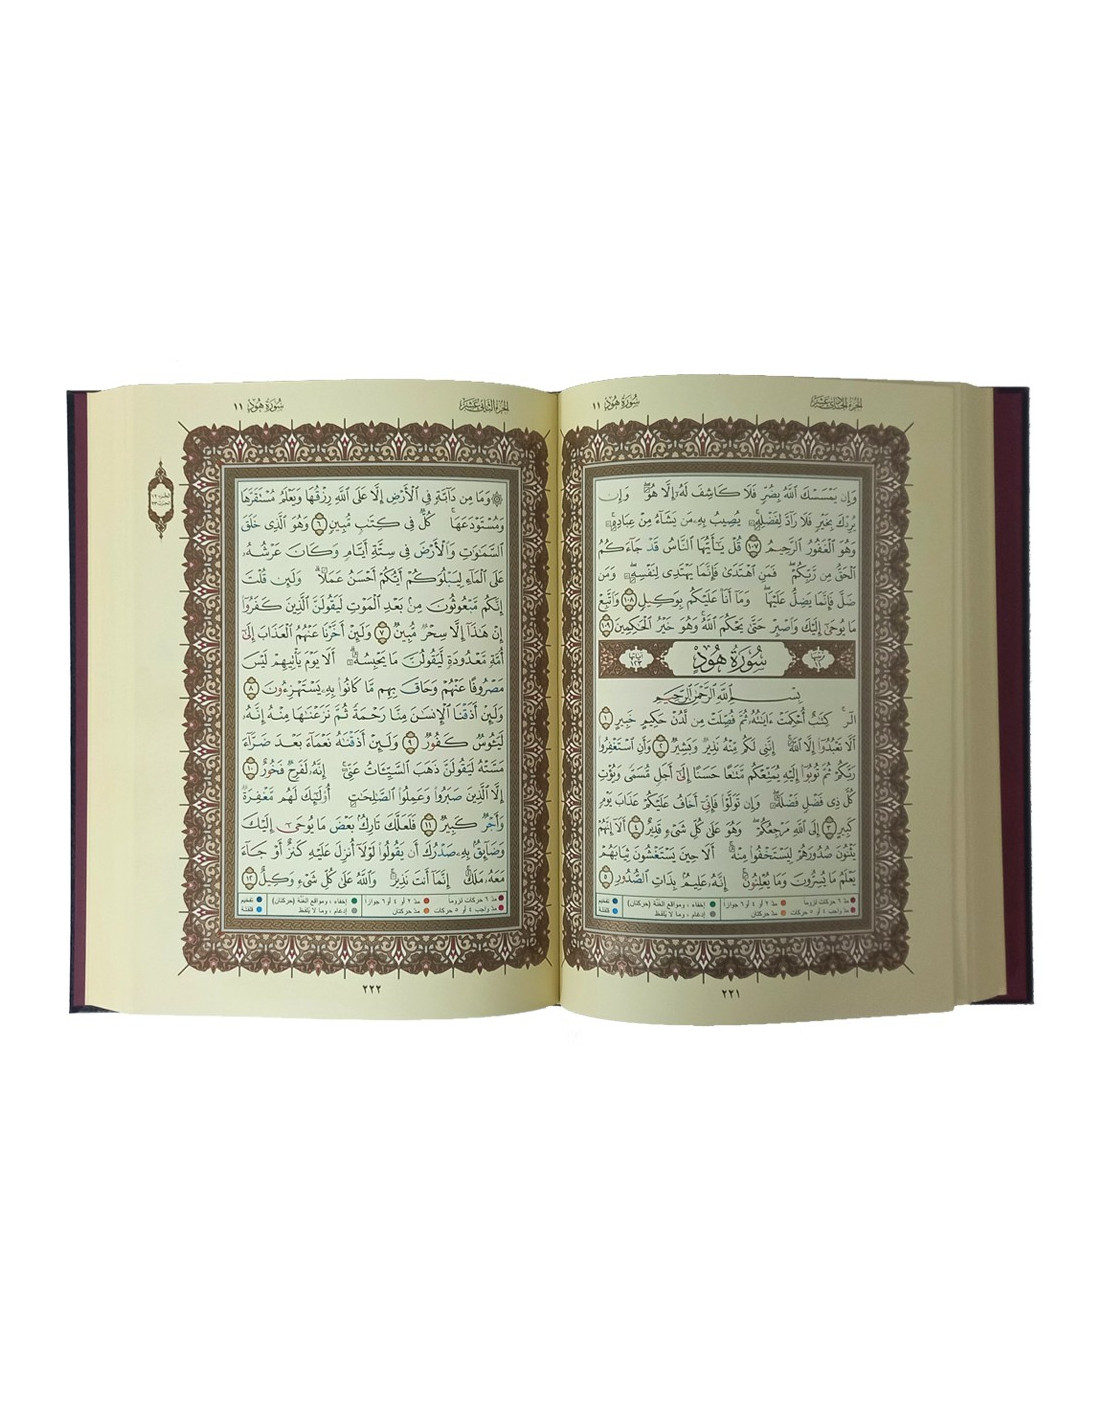 الجزء الحادي عشر
سُورَةُ هُودٍ ١١
وَإِن يَمْسَسْكَ ٱللَّهُ بِضُرٍّ فَلَا كَاشِفَ لَهُۥٓ إِلَّا هُوَۖ وَإِن
يُرِدْكَ بِخَيْرٍ فَلَا رَآدَّ لِفَضْلِهِۦۚ يُصِيبُ بِهِۦ مَن يَشَآءُ مِنْ عِبَادِهِۦۚ
وَهُوَ ٱلْغَفُورُ ٱلرَّحِيمُ ١٠٧ قُلْ يَٰٓأَيُّهَا ٱلنَّاسُ قَدْ جَآءَكُمُ
ٱلْحَقُّ مِن رَّبِّكُمْۖ فَمَنِ ٱهْتَدَىٰ فَإِنَّمَا يَهْتَدِى لِنَفْسِهِۦۖ وَمَن
ضَلَّ فَإِنَّمَا يَضِلُّ عَلَيْهَاۖ وَمَآ أَنَا۠ عَلَيْكُم بِوَكِيلٍ ١٠٨ وَٱتَّبِعْ
مَا يُوحَىٰٓ إِلَيْكَ وَٱصْبِرْ حَتَّىٰ يَحْكُمَ ٱللَّهُۚ وَهُوَ خَيْرُ ٱلْحَٰكِمِينَ ١٠٩
سُورَةُ هُودٍ
آياتها ١٢٣
بِسْمِ ٱللَّهِ ٱلرَّحْمَٰنِ ٱلرَّحِيمِ
الٓرۚ كِتَٰبٌ أُحْكِمَتْ ءَايَٰتُهُۥ ثُمَّ فُصِّلَتْ مِن لَّدُنْ حَكِيمٍ خَبِيرٍ ١
أَلَّا تَعْبُدُوٓا۟ إِلَّا ٱللَّهَۚ إِنَّنِى لَكُم مِّنْهُ نَذِيرٌ وَبَشِيرٌ ٢ وَأَنِ ٱسْتَغْفِرُوا۟
رَبَّكُمْ ثُمَّ تُوبُوٓا۟ إِلَيْهِ يُمَتِّعْكُم مَّتَٰعًا حَسَنًا إِلَىٰٓ أَجَلٍ مُّسَمًّى وَيُؤْتِ
كُلَّ ذِى فَضْلٍ فَضْلَهُۥۖ وَإِن تَوَلَّوْا۟ فَإِنِّىٓ أَخَافُ عَلَيْكُمْ عَذَابَ يَوْمٍ
كَبِيرٍ ٣ إِلَى ٱللَّهِ مَرْجِعُكُمْۖ وَهُوَ عَلَىٰ كُلِّ شَىْءٍ قَدِيرٌ ٤ أَلَآ إِنَّهُمْ
يَثْنُونَ صُدُورَهُمْ لِيَسْتَخْفُوا۟ مِنْهُۚ أَلَا حِينَ يَسْتَغْشُونَ ثِيَابَهُمْ
يَعْلَمُ مَا يُسِرُّونَ وَمَا يُعْلِنُونَۚ إِنَّهُۥ عَلِيمٌۢ بِذَاتِ ٱلصُّدُورِ ٥
مدّ ٦ حركات لزوماً مدّ ٢ أو ٤ أو ٦ جوازاً إخفاء ، ومواقع الغنّة (حركتان) تفخيم
مدّ واجب ٤ أو ٥ حركات مدّ حركتان إدغام ، وما لا يُلفظ قلقلة
٢٢١
الجزء الثاني عشر
سُورَةُ هُودٍ ١١
وَمَا مِن دَآبَّةٍ فِى ٱلْأَرْضِ إِلَّا عَلَى ٱللَّهِ رِزْقُهَا وَيَعْلَمُ مُسْتَقَرَّهَا
وَمُسْتَوْدَعَهَاۚ كُلٌّ فِى كِتَٰبٍ مُّبِينٍ ٦ وَهُوَ ٱلَّذِى خَلَقَ
ٱلسَّمَٰوَٰتِ وَٱلْأَرْضَ فِى سِتَّةِ أَيَّامٍ وَكَانَ عَرْشُهُۥ
عَلَى ٱلْمَآءِ لِيَبْلُوَكُمْ أَيُّكُمْ أَحْسَنُ عَمَلًاۗ وَلَئِن قُلْتَ
إِنَّكُم مَّبْعُوثُونَ مِنۢ بَعْدِ ٱلْمَوْتِ لَيَقُولَنَّ ٱلَّذِينَ كَفَرُوٓا۟
إِنْ هَٰذَآ إِلَّا سِحْرٌ مُّبِينٌ ٧ وَلَئِنْ أَخَّرْنَا عَنْهُمُ ٱلْعَذَابَ إِلَىٰٓ
أُمَّةٍ مَّعْدُودَةٍ لَّيَقُولُنَّ مَا يَحْبِسُهُۥٓۗ أَلَا يَوْمَ يَأْتِيهِمْ لَيْسَ
مَصْرُوفًا عَنْهُمْ وَحَاقَ بِهِم مَّا كَانُوا۟ بِهِۦ يَسْتَهْزِءُونَ ٨
وَلَئِنْ أَذَقْنَا ٱلْإِنسَٰنَ مِنَّا رَحْمَةً ثُمَّ نَزَعْنَٰهَا مِنْهُ إِنَّهُۥ
لَيَـُٔوسٌ كَفُورٌ ٩ وَلَئِنْ أَذَقْنَٰهُ نَعْمَآءَ بَعْدَ ضَرَّآءَ
مَسَّتْهُ لَيَقُولَنَّ ذَهَبَ ٱلسَّيِّـَٔاتُ عَنِّىٓۚ إِنَّهُۥ لَفَرِحٌ فَخُورٌ ١٠
إِلَّا ٱلَّذِينَ صَبَرُوا۟ وَعَمِلُوا۟ ٱلصَّٰلِحَٰتِ أُو۟لَٰٓئِكَ لَهُم مَّغْفِرَةٌ
وَأَجْرٌ كَبِيرٌ ١١ فَلَعَلَّكَ تَارِكٌۢ بَعْضَ مَا يُوحَىٰٓ إِلَيْكَ
وَضَآئِقٌۢ بِهِۦ صَدْرُكَ أَن يَقُولُوا۟ لَوْلَآ أُنزِلَ عَلَيْهِ كَنزٌ أَوْ جَآءَ
مَعَهُۥ مَلَكٌۚ إِنَّمَآ أَنتَ نَذِيرٌۚ وَٱللَّهُ عَلَىٰ كُلِّ شَىْءٍ وَكِيلٌ ١٢
مدّ ٦ حركات لزوماً مدّ ٢ أو ٤ أو ٦ جوازاً إخفاء ، ومواقع الغنّة (حركتان) تفخيم
مدّ واجب ٤ أو ٥ حركات مدّ حركتان إدغام ، وما لا يُلفظ قلقلة
٢٢٢